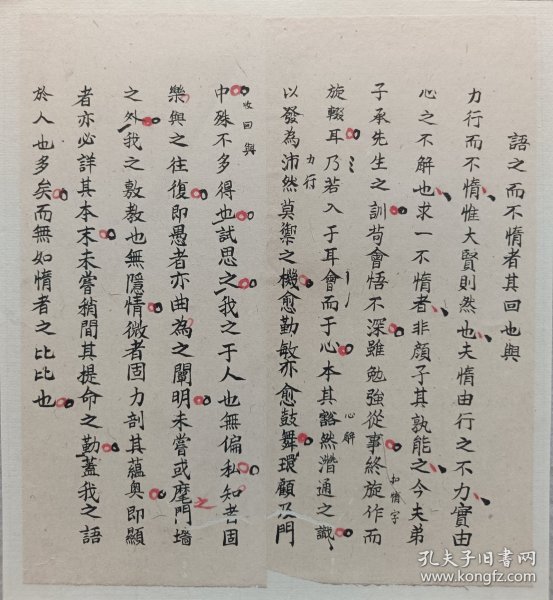 語之而不惰者其回也與
力行而不惰惟大賢則然也夫惰由行之不力實由
心之不解也求一不惰者非顏子其孰能之今夫弟
子承先生之訓苟會悟不深雖勉強從事終旋作而
扣惰字
旋輟耳乃若入于耳會而于心本其豁然潛通之識
心解
以發為沛然莫禦之機愈勤敏亦愈鼓舞環顧及門
力行
中殊不多得也試思之我之于人也無偏私知者固
收回與
樂與之往復即愚者亦曲為之闡明未嘗或麾門墻
之外我之敷教也無隱情微者固力剖其蘊奧即顯
者亦必詳其本末未嘗稍間其提命之勤蓋我之語
於人也多矣而無如惰者之比比也
孔夫子旧书网
www.kongfz.com